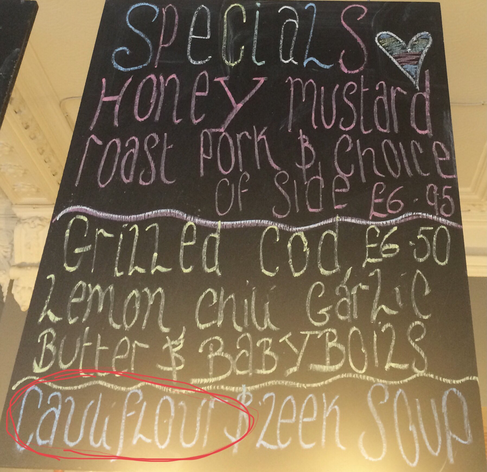 Specials
Honey mustard
roast pork & choice
of side £6.95
Grilled cod, £6.50
Lemon chili Garlic
Butter & BABY BOILS
Cauliflour & leek soup